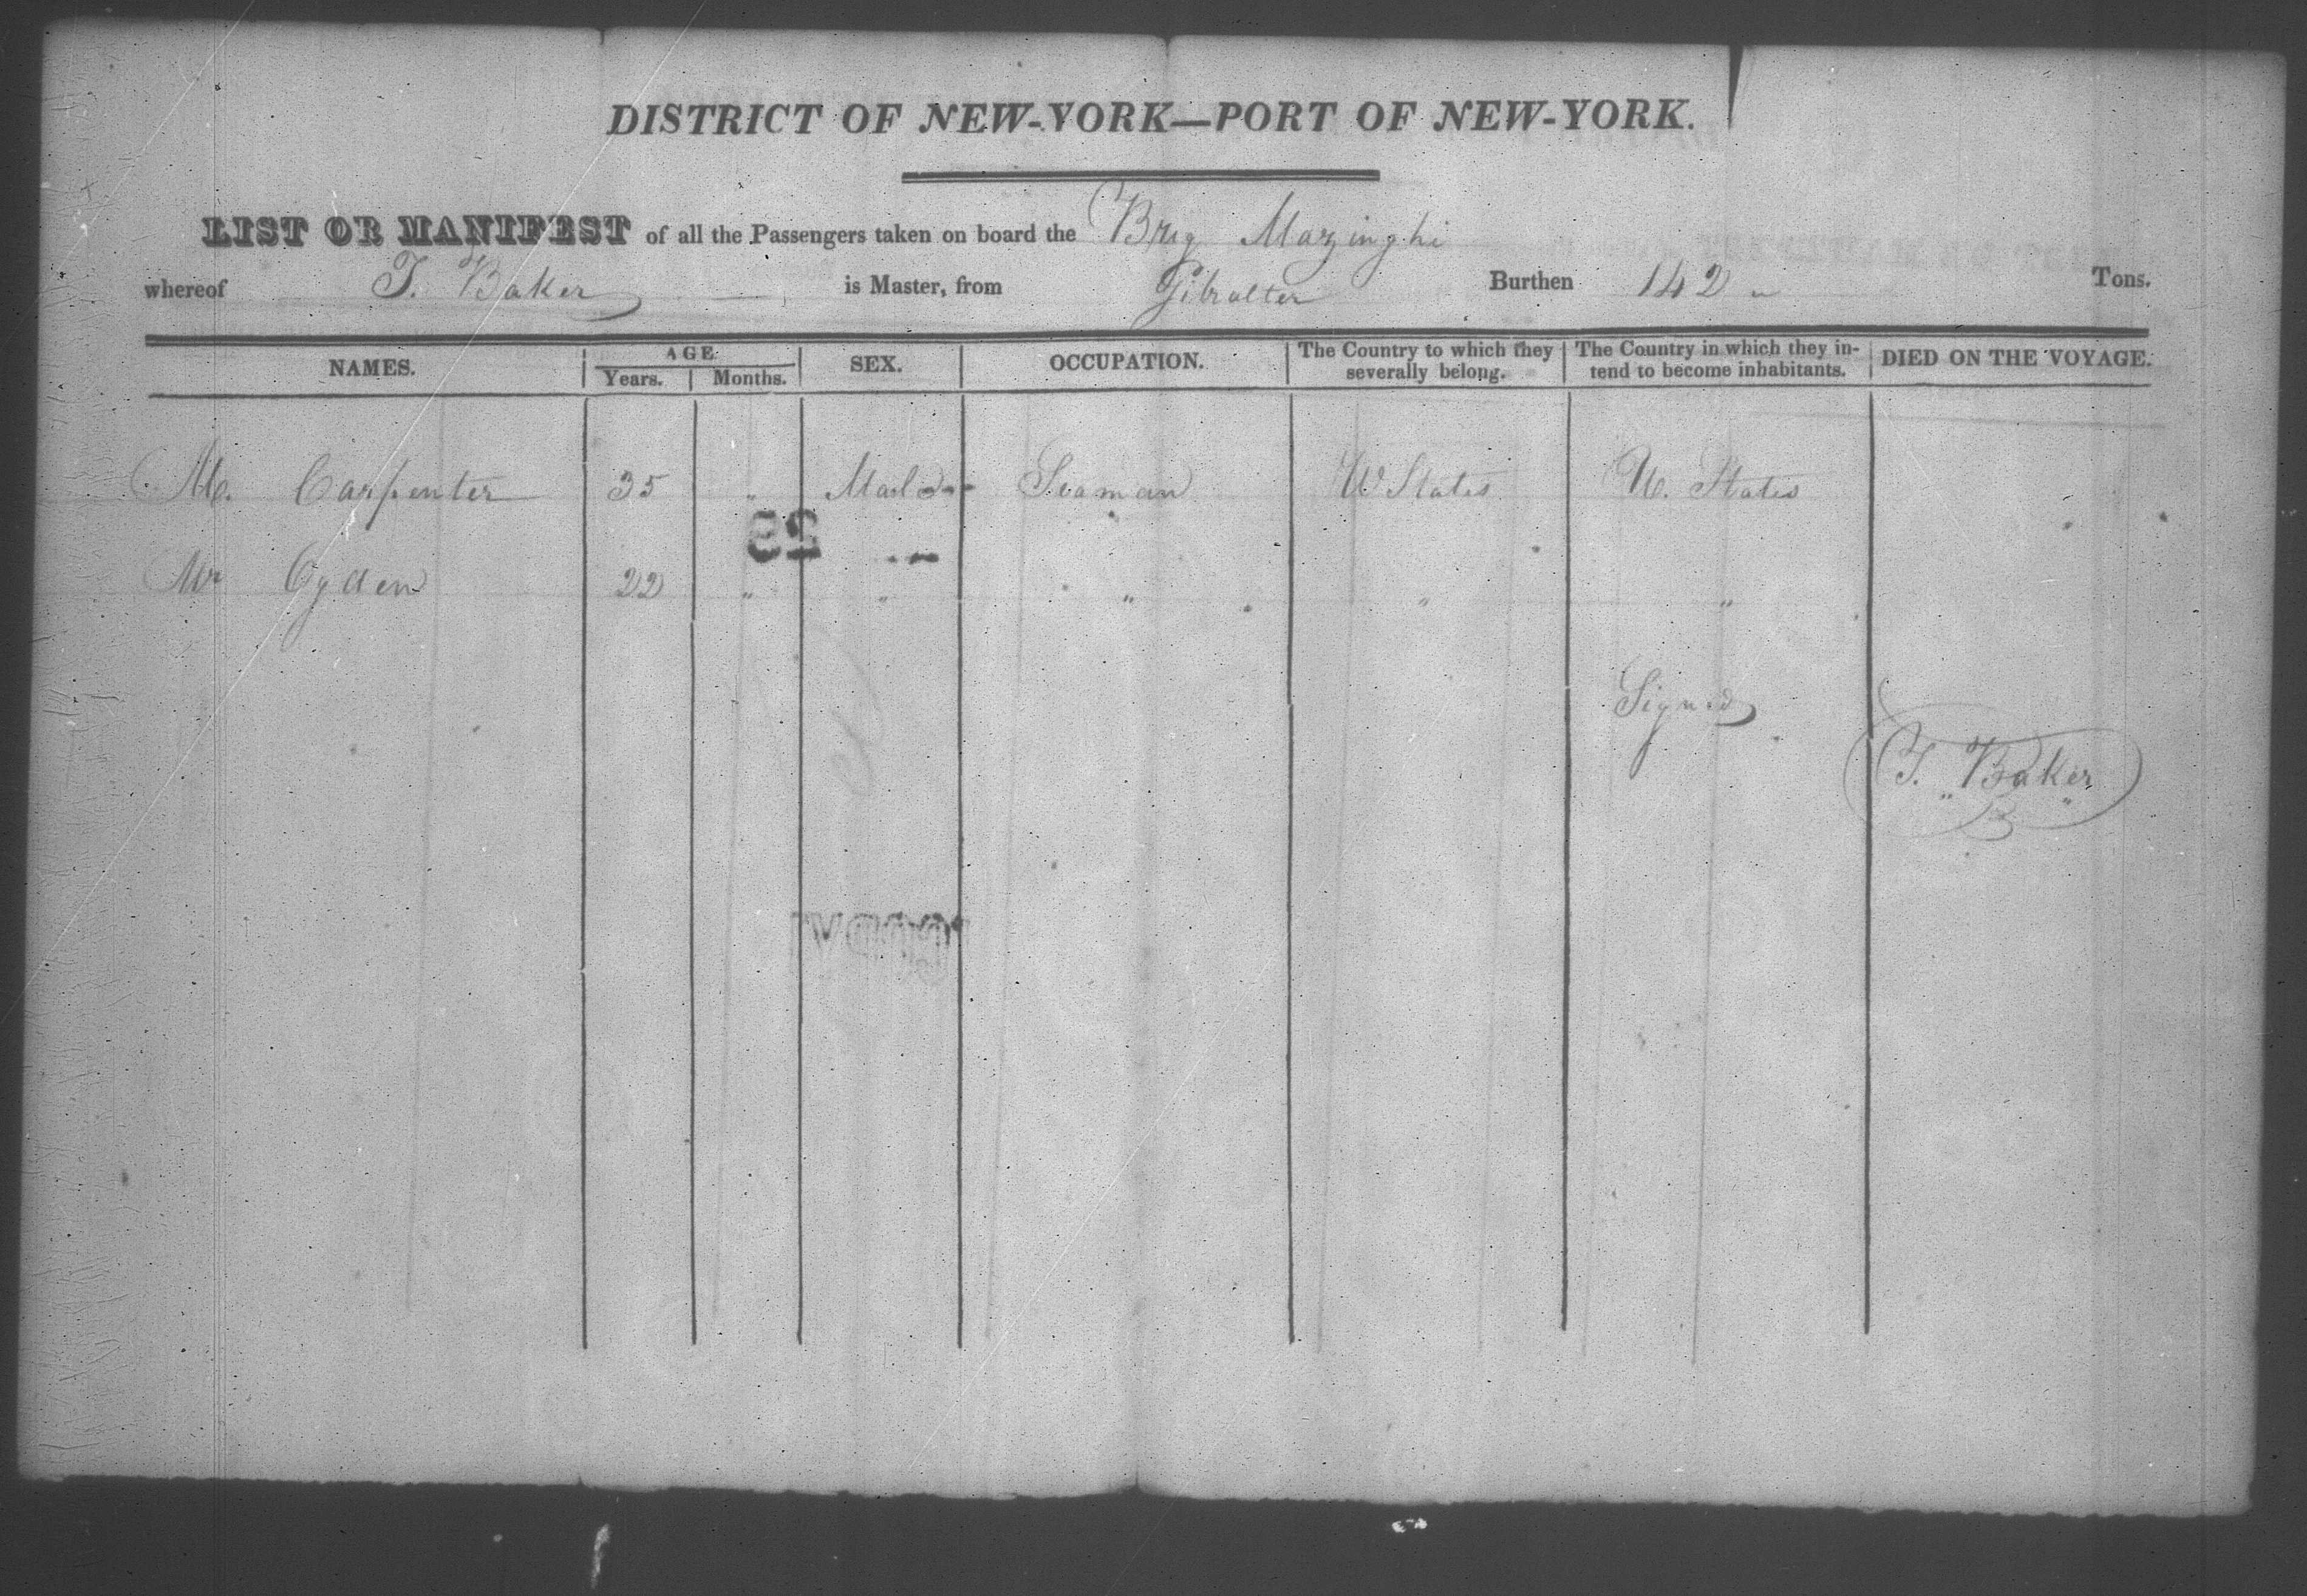 DISTRICT OF NEW-YORK—PORT OF NEW-YORK.
LIST OR MANIFEST of all the Passengers taken on board the Brig Mazinghi
whereof T. Baker is Master, from Gibralter Burthen 142 Tons.
NAMES. AGE. Years. Months. SEX. OCCUPATION. The Country to which they severally belong. The Country in which they in-tend to become inhabitants. DIED ON THE VOYAGE.
Carpenter 35 " Male Seaman U States U. States
Mr Ogden 22 " " " " "
Signed
T. Baker